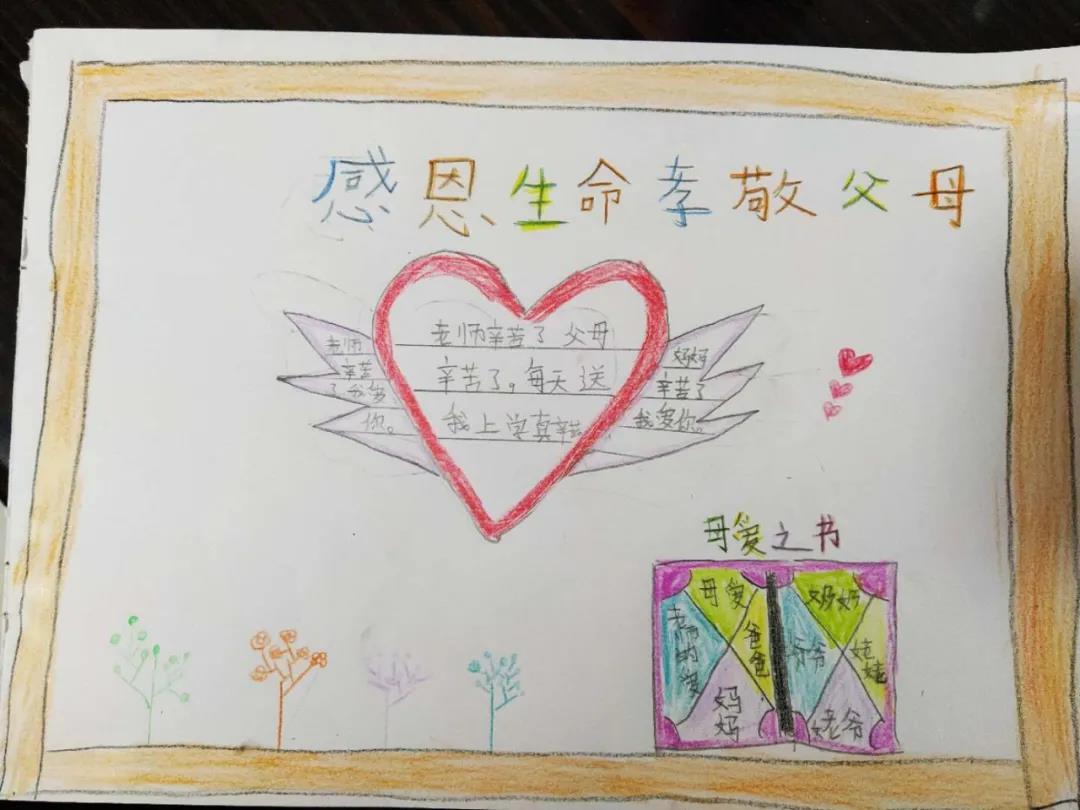 感恩生命孝敬父母
老师
辛苦
了我爱
你。
老师辛苦了父母
辛苦了。每天送
我上学真辛苦
妈妈
辛苦了
我爱你。
母爱之书
母爱
老师的爱
爸爸
妈妈
奶奶
爷爷
姥姥
姥爷